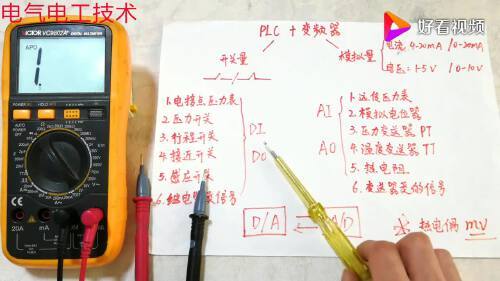 电气电工技术
好看视频
VICTOR VC9802A+
DIGITAL MULTIMETER
APO
1
POWER
20A
mA
PLC + 变频器
开关量
模拟量
电流: 4-20mA / 0-20mA
电压: 1-5V / 0-10V
1.电接点压力表
2.压力开关
3.行程开关
4.接近开关
5.感应开关
6.继电器 信号
DI
DO
AI
AO
1.远传压力表
2.模拟电位器
3.压力变送器 PT
4.温度变送器 TT
5.热电阻
6.变送器类的信号
D/A
A/D
热电偶 mV